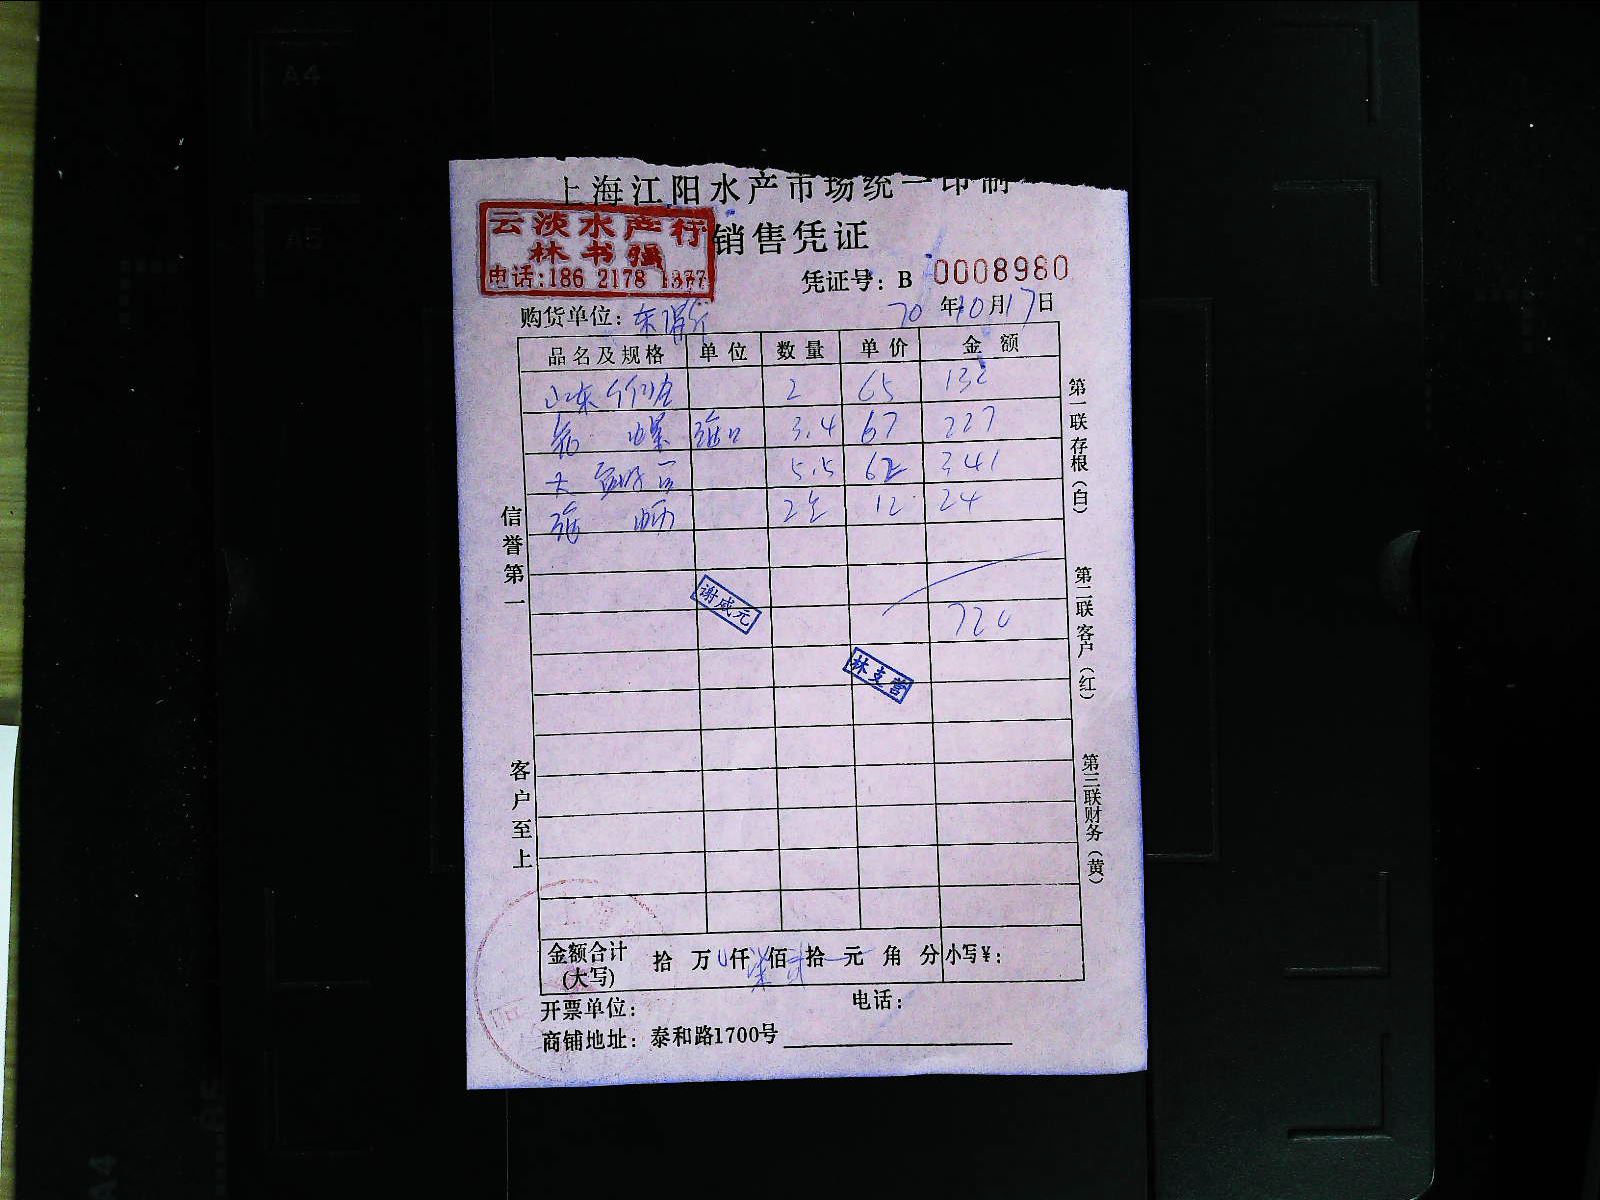 上海江阳水产市场统一印制
云淡水产行
林书强
电话:186 2178 1377
销售凭证
凭证号：B 0008980
购货单位：东
20年10月17日
品名及规格 单位 数量 单价 金额
山东 2 65 132
螺 3.4 67 227
大 5.5 62 341
2 12 24
谢咸元
720
林支营
金额合计(大写) 拾 万 仟 柒佰 贰拾 元 角 分 小写¥：
开票单位： 电话：
商铺地址：泰和路1700号
信誉第一
客户至上
第一联存根（白）
第二联客户（红）
第三联财务（黄）
A4
A5